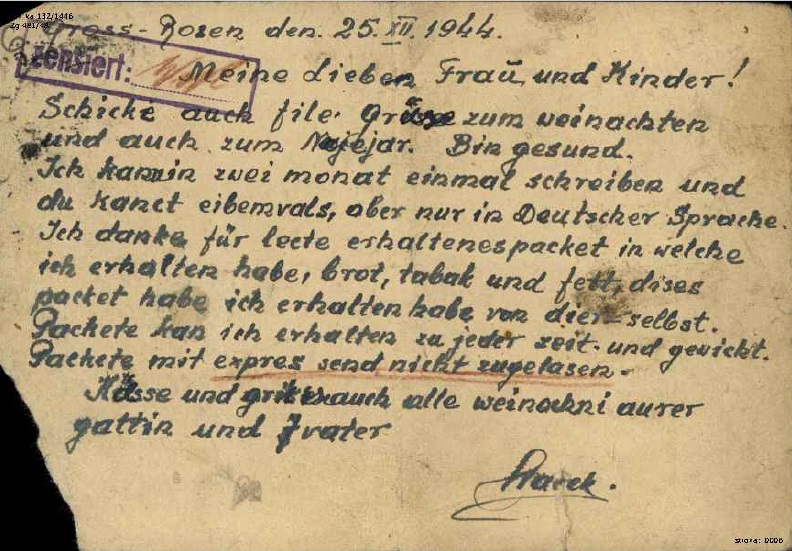 ka 132/1446
Gross-Rosen den. 25. XII 1944.
zensiert:
Meine Lieben Frau und Kinder!
Schicke auch file grüse zum weinachten
und auch zum Nojejar. Bin gesund.
Ich kan in zwei monat einmal schreiben und
du kanct eibemvals, aber nur in Deutscher Sprache.
Ich danke für lecte erhaltenespacket in welche
ich erhalten habe, brot, tabak und fett, dises
packet habe ich erhalten habe von dier selbst.
Packete kan ich erhalten zu jeder zeit. und gewicht.
Packete mit expres send nicht zugelasen.
Küsse und auch alle aurer
gattin und frater
strona: 0006